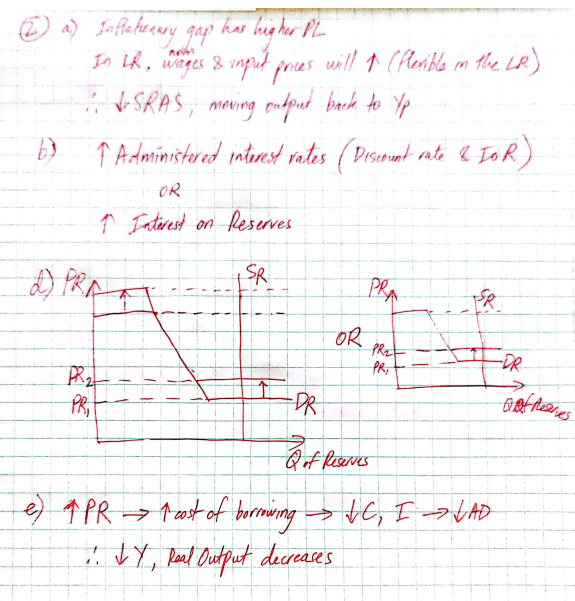 ② a) Inflationary gap has higher PL
In LR, nom wages & input prices will ↑ (flexible in the LR)
∴ ↓SRAS, moving output back to Yp
b) ↑ Administered interest rates (Discount rate & IoR)
OR
↑ Interest on Reserves
d) PR
SR
PR₂
PR₁
DR
Q of Reserves
OR
PR
SR
PR₂
PR₁
DR
Q of Reserves
e) ↑PR → ↑ cost of borrowing → ↓C, I → ↓AD
∴ ↓Y, Real Output decreases